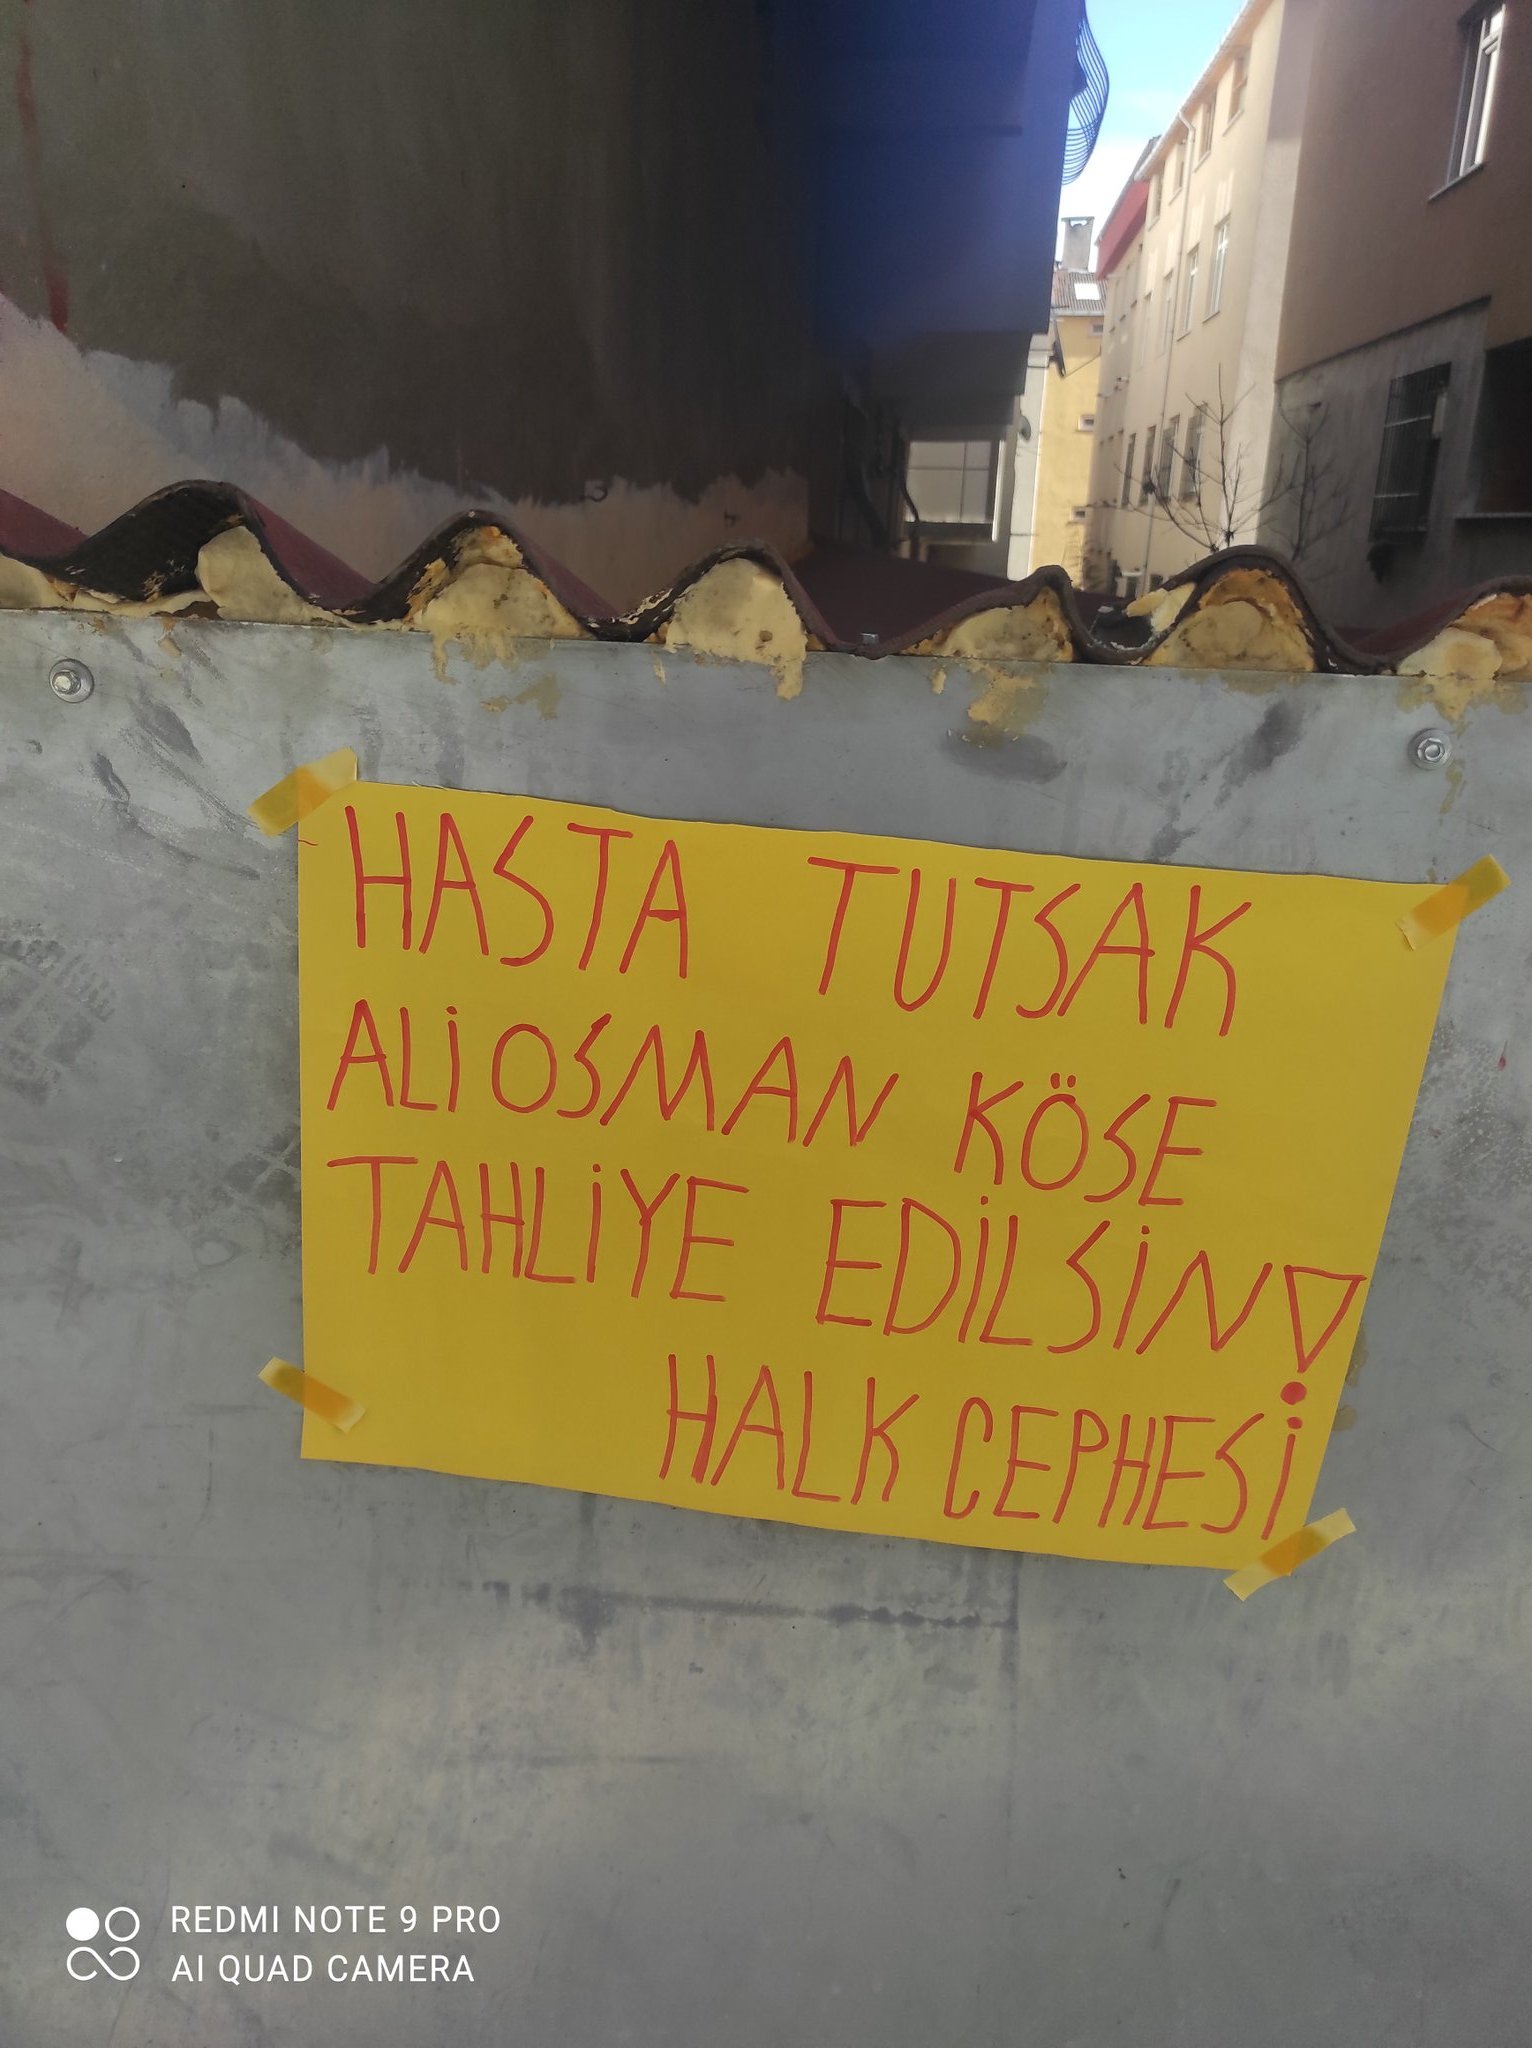 HASTA TUTSAK
ALİ OSMAN KÖSE
TAHLİYE EDİLSİN!
HALK CEPHESİ
REDMI NOTE 9 PRO
AI QUAD CAMERA